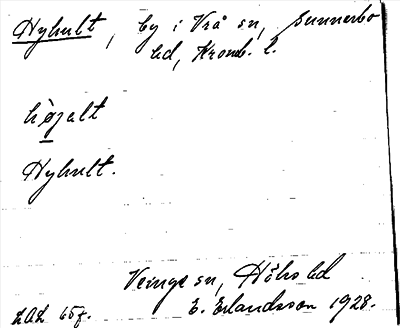 Hyhult, by i Vrå sn, Sunnerbo
hd, Kronb. l.
högalt
Hyhult.
Veinge sn, Höks hd
E. Erlandsson 1928.